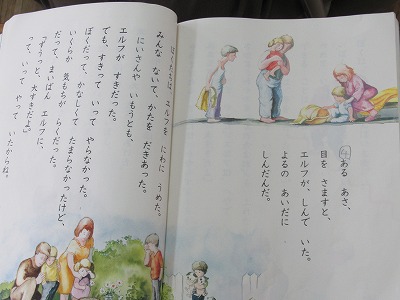 ④
ある あさ、
目を さますと、
エルフが、しんで いた。
よるの あいだに
しんだんだ。
ぼくたちは、エルフを にわに うめた。
みんな ないて、かたを だきあった。
にいさんや いもうとも、
エルフが すきだった。
でも、すきって いって やらなかった。
ぼくだって、かなしくて たまらなかったけど、
いくらか 気もちが らくだった。
だって、まいばん エルフに、
「ずうっと、大すきだよ。」
って、いって やって いたからね。